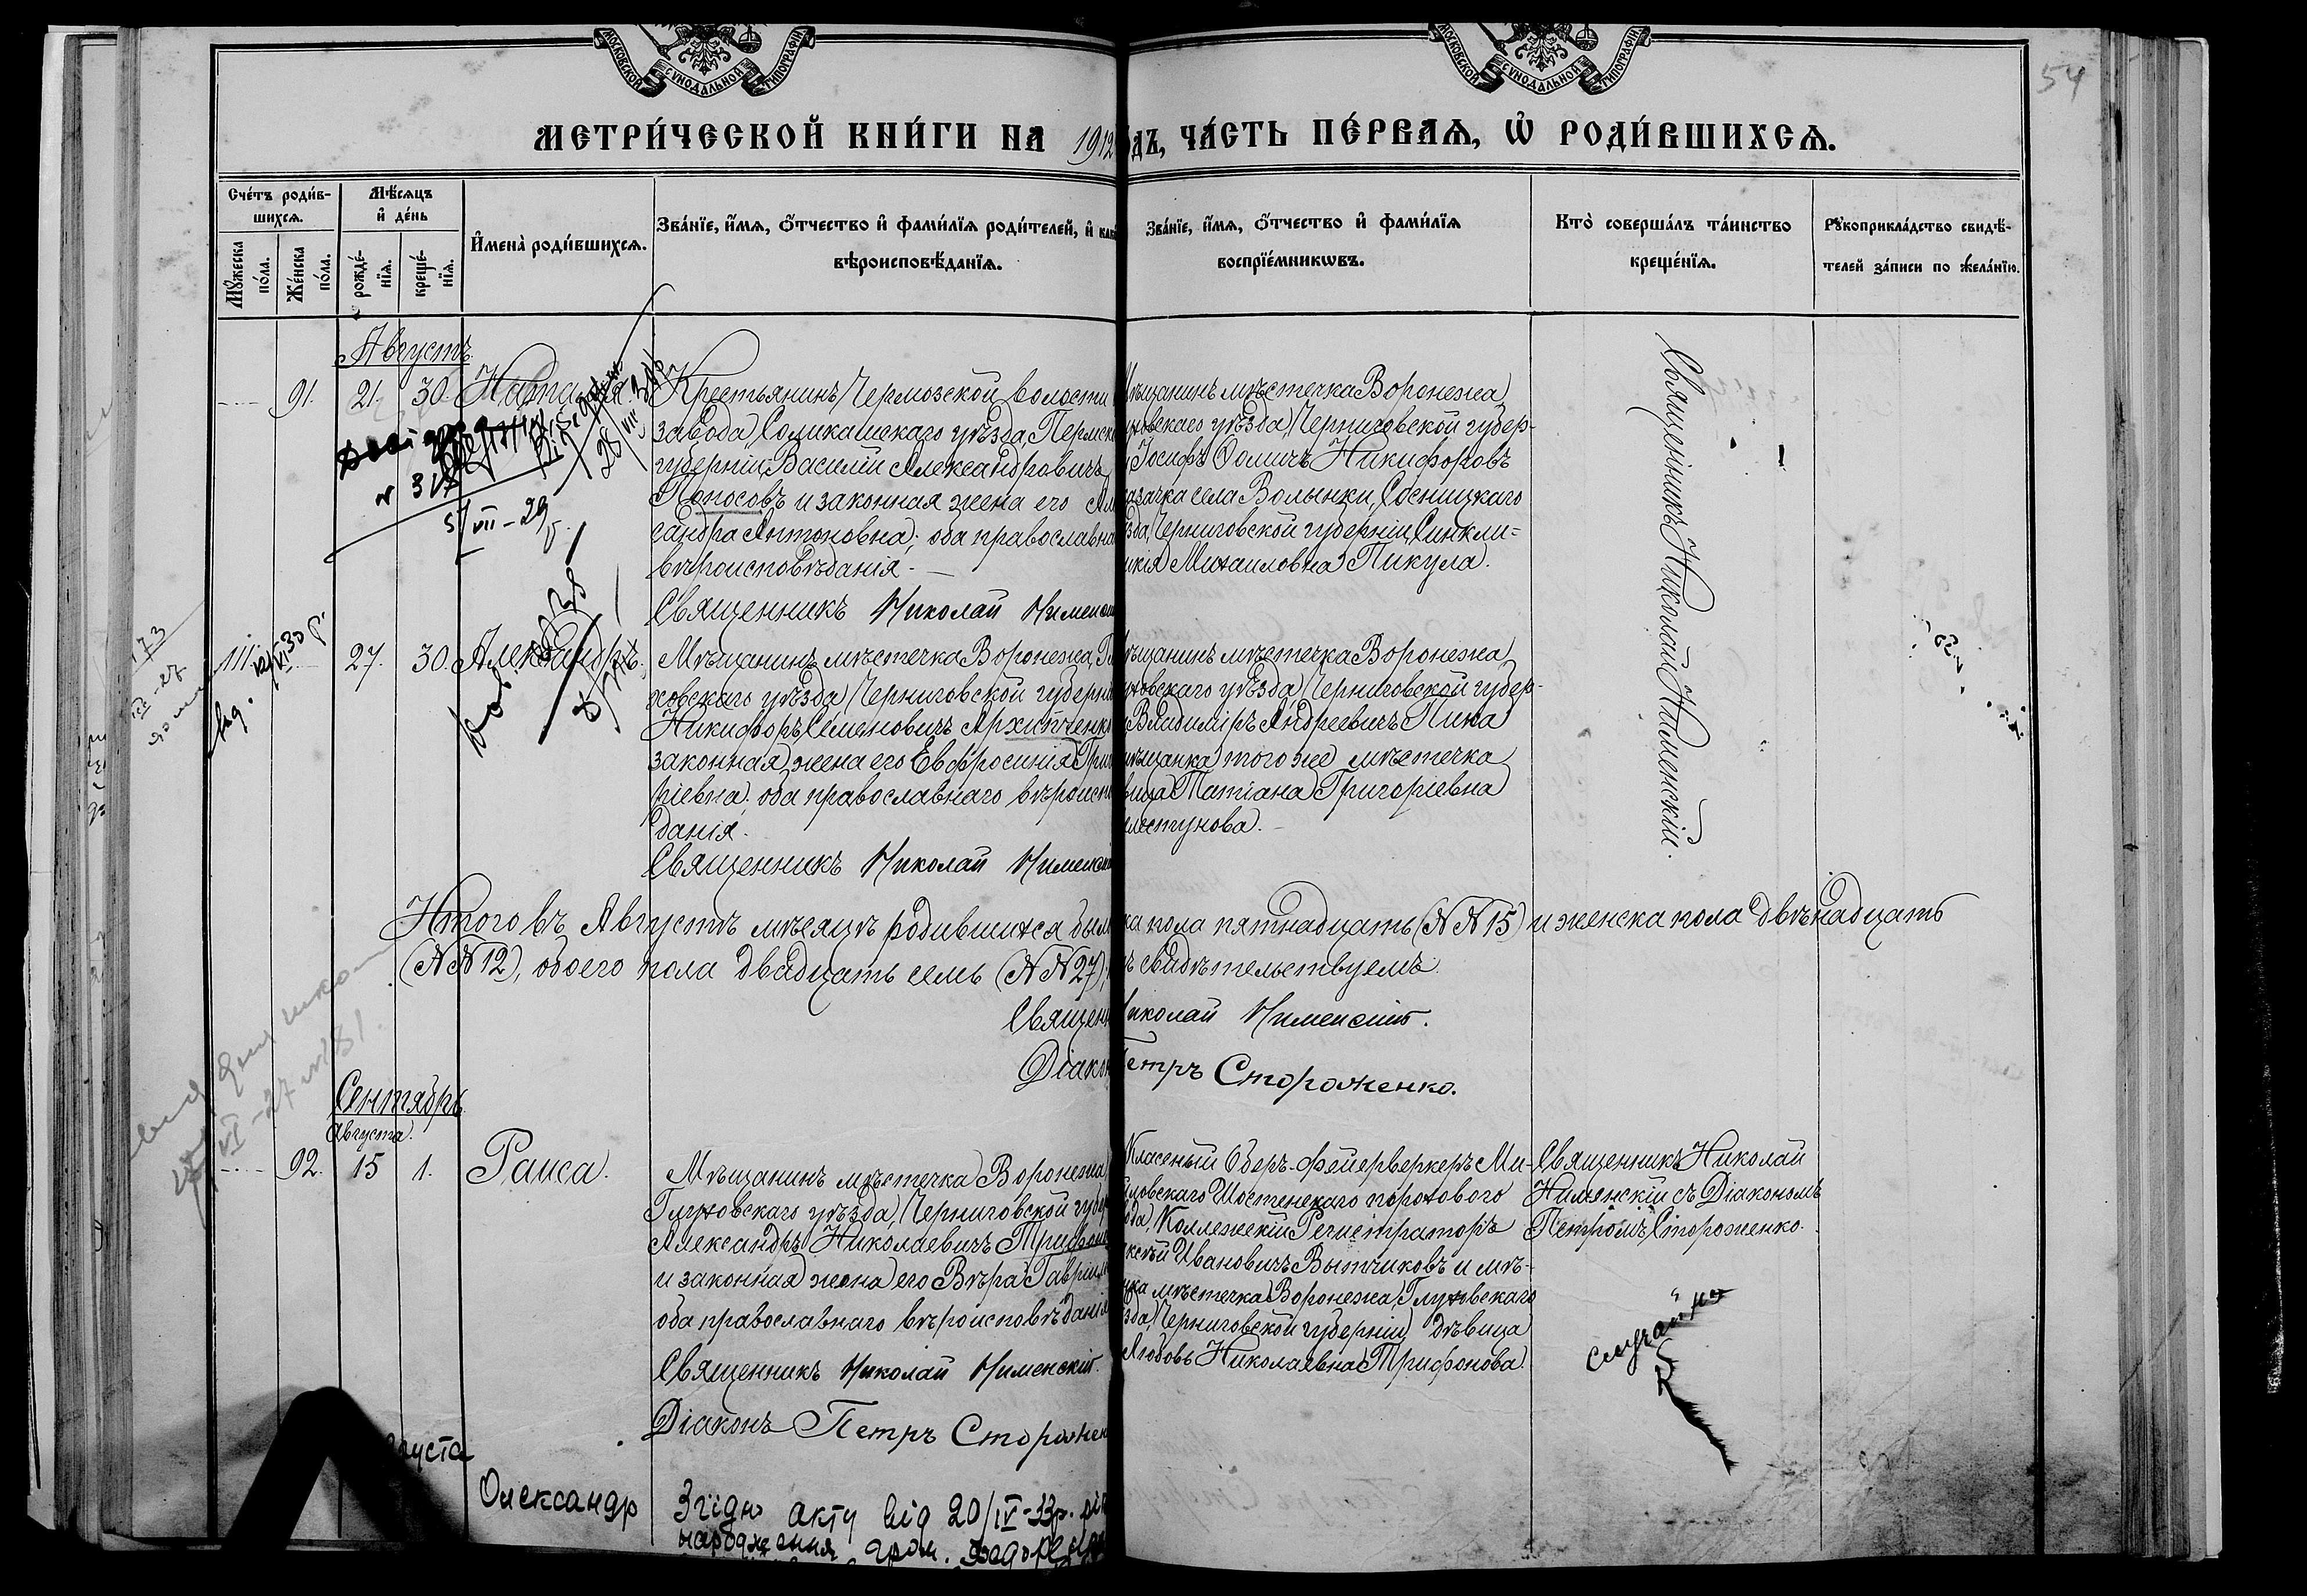 МОСКОВСКОЙ СУНОДАЛЬНОЙ ТИПОГРАФІИ
МОСКОВСКОЙ СУНОДАЛЬНОЙ ТИПОГРАФІИ
54
МЕТРИ́ЧЕСКОЙ КНИ́ГИ НА 1912
дъ, ЧА́СТЬ ПЕ́РВАѦ, Ѡ РОДИ́ВШИХСѦ.
Сче́тъ роди́в-
шихсѧ.
Мꙋ́жеска по́ла.
Же́нска по́ла.
Мѣ́сѧцъ
и҆ де́нь
рожде́-
нїѧ.
креще́-
нїѧ.
И҆мена̀ роди́вшихсѧ.
Зва́нїе, и҆́мѧ, ѻ҆́тчество и҆ фами́лїѧ роди́телей, и҆
вѣроисповѣ́данїѧ.
Зва́нїе, и҆́мѧ, ѻ҆́тчество и҆ фами́лїѧ
воспрїе́мникѡвъ.
Кто̀ соверша́лъ та́инство
креще́нїѧ.
Рꙋкоприкла́дство свидѣ́-
телей за́писи по жела́нїю.
Августъ
91. 21. 30.
Крестьянинъ Чермозской волости
завода, Соликамскаго уѣзда, Пермск
губерніи, Василій Александровичъ
Попосовъ и законная жена его Ал
сандра Антоновна; оба православна
вѣроисповѣданія.
Священникъ Николай Нименск
ѣщанинъ мѣстечка Воронежа,
уховскаго уѣзда, Черниговской губер-
Іосифъ Ѳомичъ Никифоровъ
азачка села Волынки, Сосницкаго
зда, Черниговской губерніи, Синкли-
икія Михаиловна Пикула.
Священникъ Николай Нименскій.
№ 317
5/VII-29
28/VII
111. 27. 30. Александръ.
Мѣщанинъ мѣстечка Воронежа, Гл
ховскаго уѣзда, Черниговской губерн
Никифоръ Семеновичъ Архипченко
законная жена его Евфросинія Григо
ріевна; оба православнаго вѣроиспо
данія.
Священникъ Николай Нименскі
ѣщанинъ мѣстечка Воронежа,
уховскаго уѣзда, Черниговской губер-
Владиміръ Андреевичъ Пика
мѣщанка того же мѣстечка
вица Татіана Григоріевна
Итого въ Августѣ мѣсяцѣ родившихся был
ка пола пятнадцать (№№ 15) и женска пола двѣнадцать
(№№ 12), обоего пола двадцать семь (№№ 27),
ъ свидѣтельствуемъ.
Священ
иколай Нименскій.
Діакон
етръ Стороженко.
Сентябрь
Августа.
92. 15 1. Раиса.
Мѣщанинъ мѣстечка Воронежа,
Глуховскаго уѣзда, Черниговской губер
Александръ Николаевичъ Трифон
и законная жена его Вѣра Гавріил
оба православнаго вѣроисповѣданія
Священникъ Николай Нименскій.
Діаконъ Петръ Стороженк
Класеный Оберъ-фейерверкеръ Ми-
йловскаго Шостенскаго порохового
ода, Коллежскій Регистраторъ
ксѣй Ивановичъ Вытчиковъ и мѣ-
нка мѣстечка Воронежа, Глуховскаго
зда, Черниговской губерніи, дѣвица
Любовь Николаевна Трифонова.
Священникъ Николай
Нименскій съ Діакономъ
Петромъ Стороженко.
густа
Олександр
Згідно акту від 20/IV-33р. 
народження гром. Федор